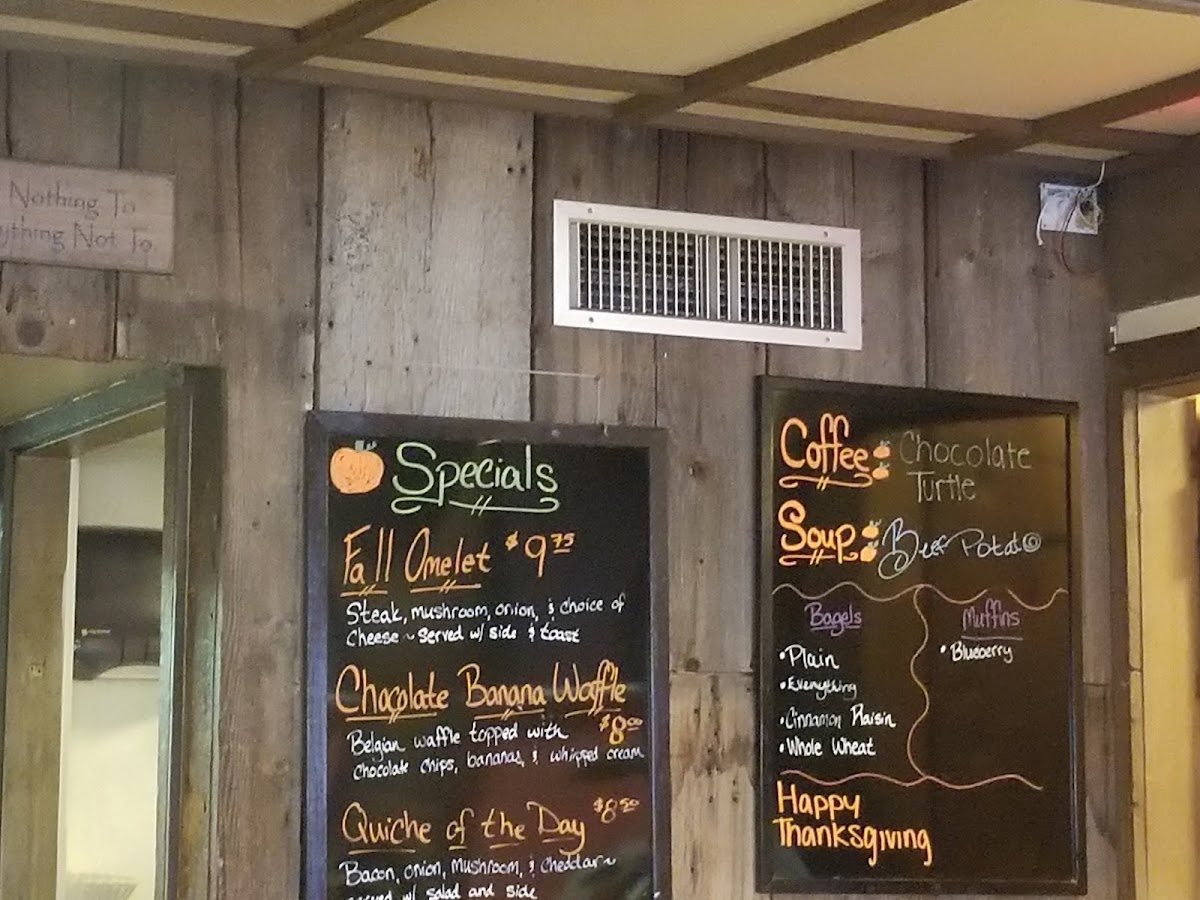 Nothing To
ything Not To
Specials
Fall Omelet $9.75
Steak, mushroom, onion, & choice of
Cheese ~ Served w/ side & toast
Chocolate Banana Waffle
$8.00
Belgian waffle topped with
chocolate chips, bananas, & whipped cream
Quiche of the Day $8.50
Bacon, onion, mushroom, & cheddar~
served w/ salad and side
Coffee: Chocolate
Turtle
Soup: Beef Potato
Bagels
• Plain
• Everything
• Cinnamon Raisin
• Whole Wheat
Muffins
• Blueberry
Happy
Thanksgiving